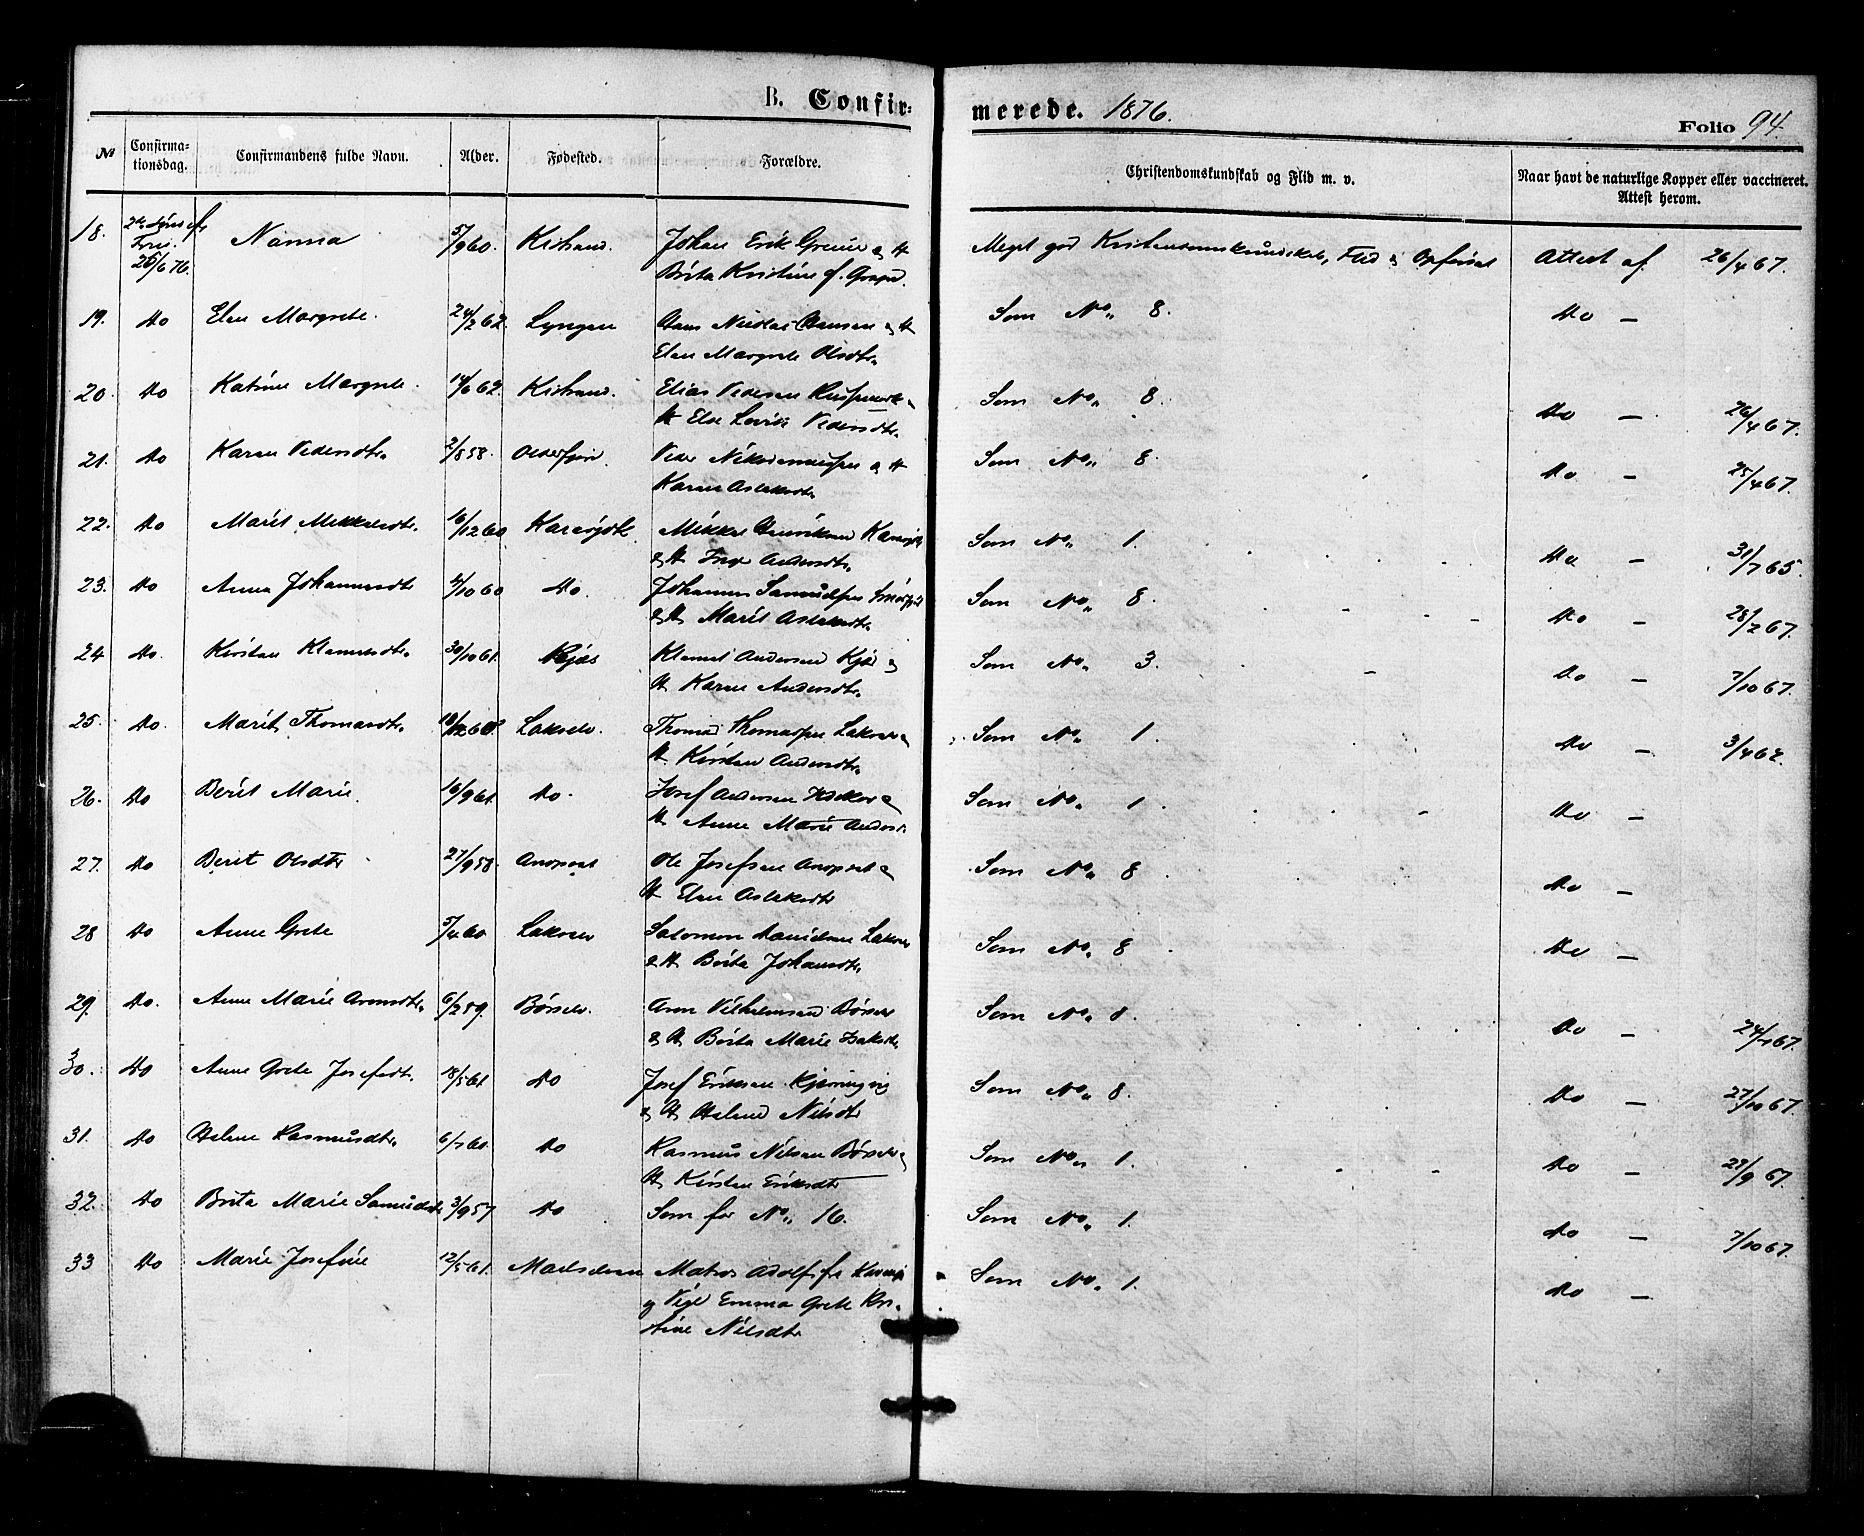 B. Confir-
merede. 1876.
Folio 94.
№ Confirmationsdag. Confirmandens fulde Navn. Alder. Fødested. Forældre. Christendomskundskab og Flid m. v. Naar havt de naturlige Kopper eller vaccineret. Attest herom.
18. 25/6 76. Nanna 5/9 60. Kistrand. Johan Erik
Brita Kristine
Meget god Kristendomskundskab, Flid & Opførsel Attest af 26/4 67.
19. Do Elen Margrete. 24/2 62. Lyngen Hans Nicolai Hansen &
Elen Margrete Olsdtr. Som No. 8. Do —
20. Do Katrine Margrete. 14/6 62. Kistrand. Elias Pedersen
Pedersdtr. Som No. 8. Do — 26/4 67.
21. Do Karen Pedersdtr. 2/8 58. Olderfjord. Peder &
Karen Aslaksdtr. Som No. 8 Do — 25/4 67.
22. Do Marit Mikkelsdtr. 16/12 60 Karasjok. Mikkel Henriksen
& Inger Andersdtr. Som No. 1. Do — 31/7 65.
23. Do Anna Johannesdtr 4/10 60 Do. Johannes Samuelsen
& Marit Aslaksdtr. Som No. 8. Do — 28/2 67.
24 Do. Kirsten Klemetsdtr. 30/10 61. Kjæs Klemet Andersen Kjæs &
Karen Andersdtr. Som No. 3. Do — 7/10 67.
25. Do. Marit Thomasdtr. Lakselv. Thomas Thomassen Lakselv &
Kirsten Andersdtr. Som No. 1. Do — 3/4 62.
26. Do Berit Marie. 16/9 61. Do. Josef Andersen
Anne Marie Andersdtr Som No. 1. Do —
27. Do Berit Olsdtr 27/9 58. Anopset Ole Josefsen Anopset &
Elen Aslaksdtr Som No. 8 Do —
28 Do Anne Grete 5/4 60 Lakselv Salomon Danielsen Lakselv
& Brita Johansdtr. Som No. 8 Do —
29. Do. Anne Marie Aronsdtr. 6/2 59. Børselv. Aron Vilhelmsen Børselv
& Brita Marie Isaksdtr Som No. 8. Do — 24/7 67.
30. Do Anne Grete Josefsdtr. 18/5 61 Do Josef Eriksen Kjerringvig
& Helene Nilsdtr Som No. 8. Do — 27/10 67.
31. Do Helene Rasmusdtr. 6/7 60. Do Rasmus Nilsen Børselv &
Kirsten Eriksdtr Som No. 1. Do — 23/9 67.
32. Do Brita Marie Samuelsdtr 3/9 57 Do Som for No. 16. Som No. 1. Do — 7/10 67.
33 Do Marie Josefine 12/5 61. Matros Adolf
Emma Grete Kri-
stine Nilsdtr Som No. 1. Do —